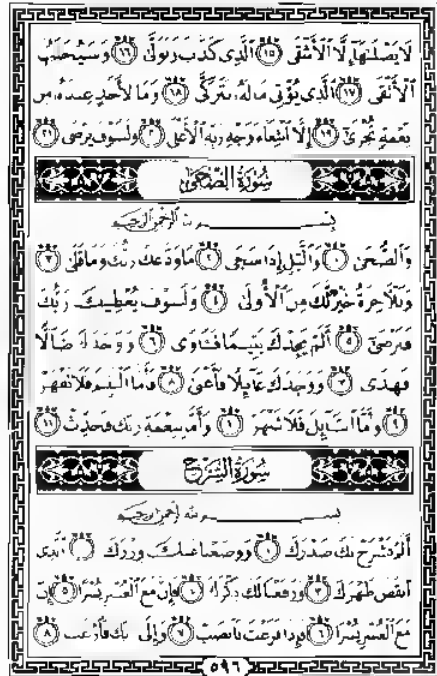 لَا يَصْلَىٰهَآ إِلَّا ٱلْأَشْقَى ١٥ ٱلَّذِى كَذَّبَ وَتَوَلَّىٰ ١٦ وَسَيُجَنَّبُهَا
ٱلْأَتْقَى ١٧ ٱلَّذِى يُؤْتِى مَالَهُۥ يَتَزَكَّىٰ ١٨ وَمَا لِأَحَدٍ عِندَهُۥ مِن
نِّعْمَةٍ تُجْزَىٰٓ ١٩ إِلَّا ٱبْتِغَآءَ وَجْهِ رَبِّهِ ٱلْأَعْلَىٰ ٢٠ وَلَسَوْفَ يَرْضَىٰ ٢١
سُورَةُ الضُّحَىٰ
بِسْمِ ٱللَّهِ ٱلرَّحْمَٰنِ ٱلرَّحِيمِ
وَٱلضُّحَىٰ ١ وَٱلَّيْلِ إِذَا سَجَىٰ ٢ مَا وَدَّعَكَ رَبُّكَ وَمَا قَلَىٰ ٣
وَلَلْءَاخِرَةُ خَيْرٌ لَّكَ مِنَ ٱلْأُولَىٰ ٤ وَلَسَوْفَ يُعْطِيكَ رَبُّكَ
فَتَرْضَىٰٓ ٥ أَلَمْ يَجِدْكَ يَتِيمًا فَـَٔاوَىٰ ٦ وَوَجَدَكَ ضَآلًّا
فَهَدَىٰ ٧ وَوَجَدَكَ عَآئِلًا فَأَغْنَىٰ ٨ فَأَمَّا ٱلْيَتِيمَ فَلَا تَقْهَرْ
٩ وَأَمَّا ٱلسَّآئِلَ فَلَا تَنْهَرْ ١٠ وَأَمَّا بِنِعْمَةِ رَبِّكَ فَحَدِّثْ ١١
سُورَةُ الشَّرْحِ
بِسْمِ ٱللَّهِ ٱلرَّحْمَٰنِ ٱلرَّحِيمِ
أَلَمْ نَشْرَحْ لَكَ صَدْرَكَ ١ وَوَضَعْنَا عَنكَ وِزْرَكَ ٢ ٱلَّذِىٓ
أَنقَضَ ظَهْرَكَ ٣ وَرَفَعْنَا لَكَ ذِكْرَكَ ٤ فَإِنَّ مَعَ ٱلْعُسْرِ يُسْرًا ٥ إِنَّ
مَعَ ٱلْعُسْرِ يُسْرًا ٦ فَإِذَا فَرَغْتَ فَٱنصَبْ ٧ وَإِلَىٰ رَبِّكَ فَٱرْغَب ٨
٥٩٦